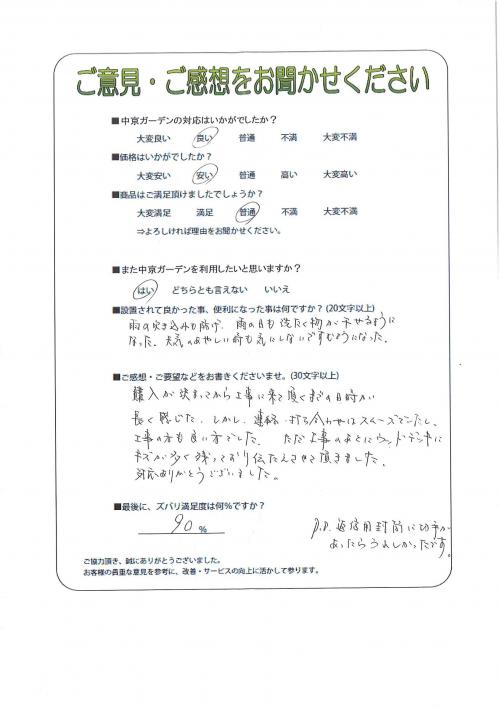 ご意見・ご感想をお聞かせください
■中京ガーデンの対応はいかがでしたか？
大変良い　良い　普通　不満　大変不満
■価格はいかがでしたか？
大変安い　安い　普通　高い　大変高い
■商品はご満足頂けましたでしょうか？
大変満足　満足　普通　不満　大変不満
⇒よろしければ理由をお聞かせください。
■また中京ガーデンを利用したいと思いますか？
はい　どちらとも言えない　いいえ
■設置されて良かった事、便利になった事は何ですか？(20文字以上)
雨の吹き込みも防げ、雨の日も洗たく物が干せるように
なった。天気のあやしい時も気にしないですむようになった。
■ご感想・ご要望などをお書きくださいませ。(30文字以上)
購入が決まってから工事に来て頂くまでの日時が
長く感じた。しかし、連絡・打ち合わせはスムーズでしたし、
工事の方も良い方でした。ただ工事のあとにウッドデッキに
キズが多く残っており伝えさせて頂きました。
対応ありがとうございました。
■最後に、ズバリ満足度は何%ですか？
90 %
P.P. 返信用封筒に切手が
あったらうれしかったです。
ご協力頂き、誠にありがとうございました。
お客様の貴重な意見を参考に、改善・サービスの向上に活かして参ります。